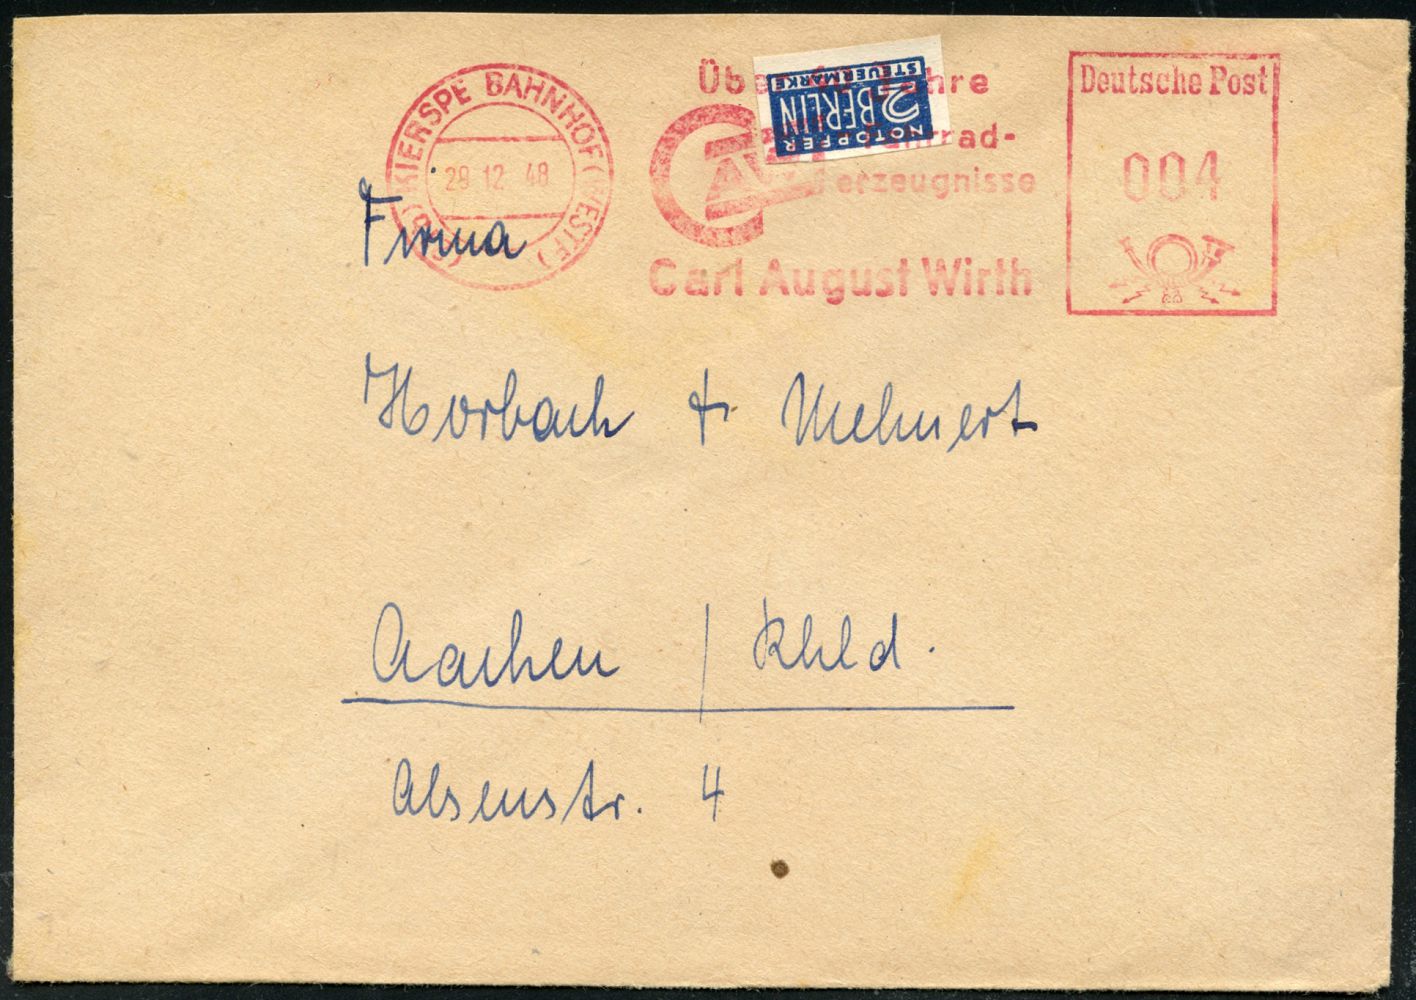 (21b) KIERSPE BAHNHOF (WESTF)
29.12.48
Über Jahre
Fahrrad-
erzeugnisse
Carl August Wirth
NOTOPFER
2 BERLIN
STEUERMARKE
Deutsche Post
004
Firma
Horbach & Mehnert
Aachen / Rhld.
Alsenstr. 4